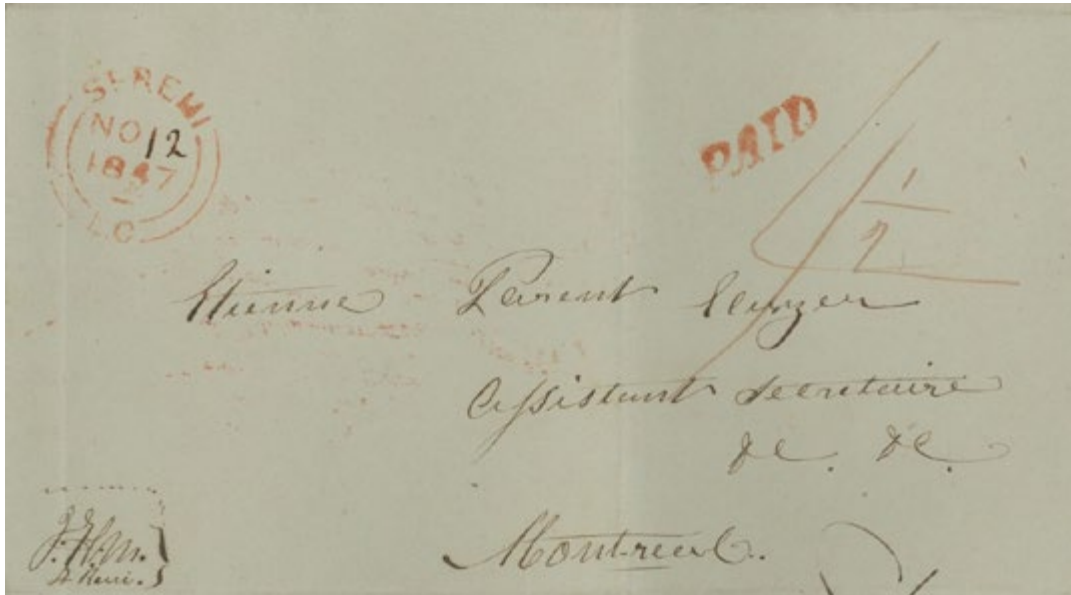 ST REMI
NO 12
1847
L.C.
PAID
4 1/2
Etienne Parent Ecuyer
Assistant Secretaire
&c. &c.
Montreal.
St Remi.